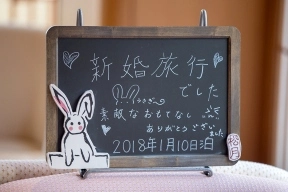 新婚旅行
でした
うさぎ
素敵なおもてなし
ありがとうございました
2018年1月10日泊